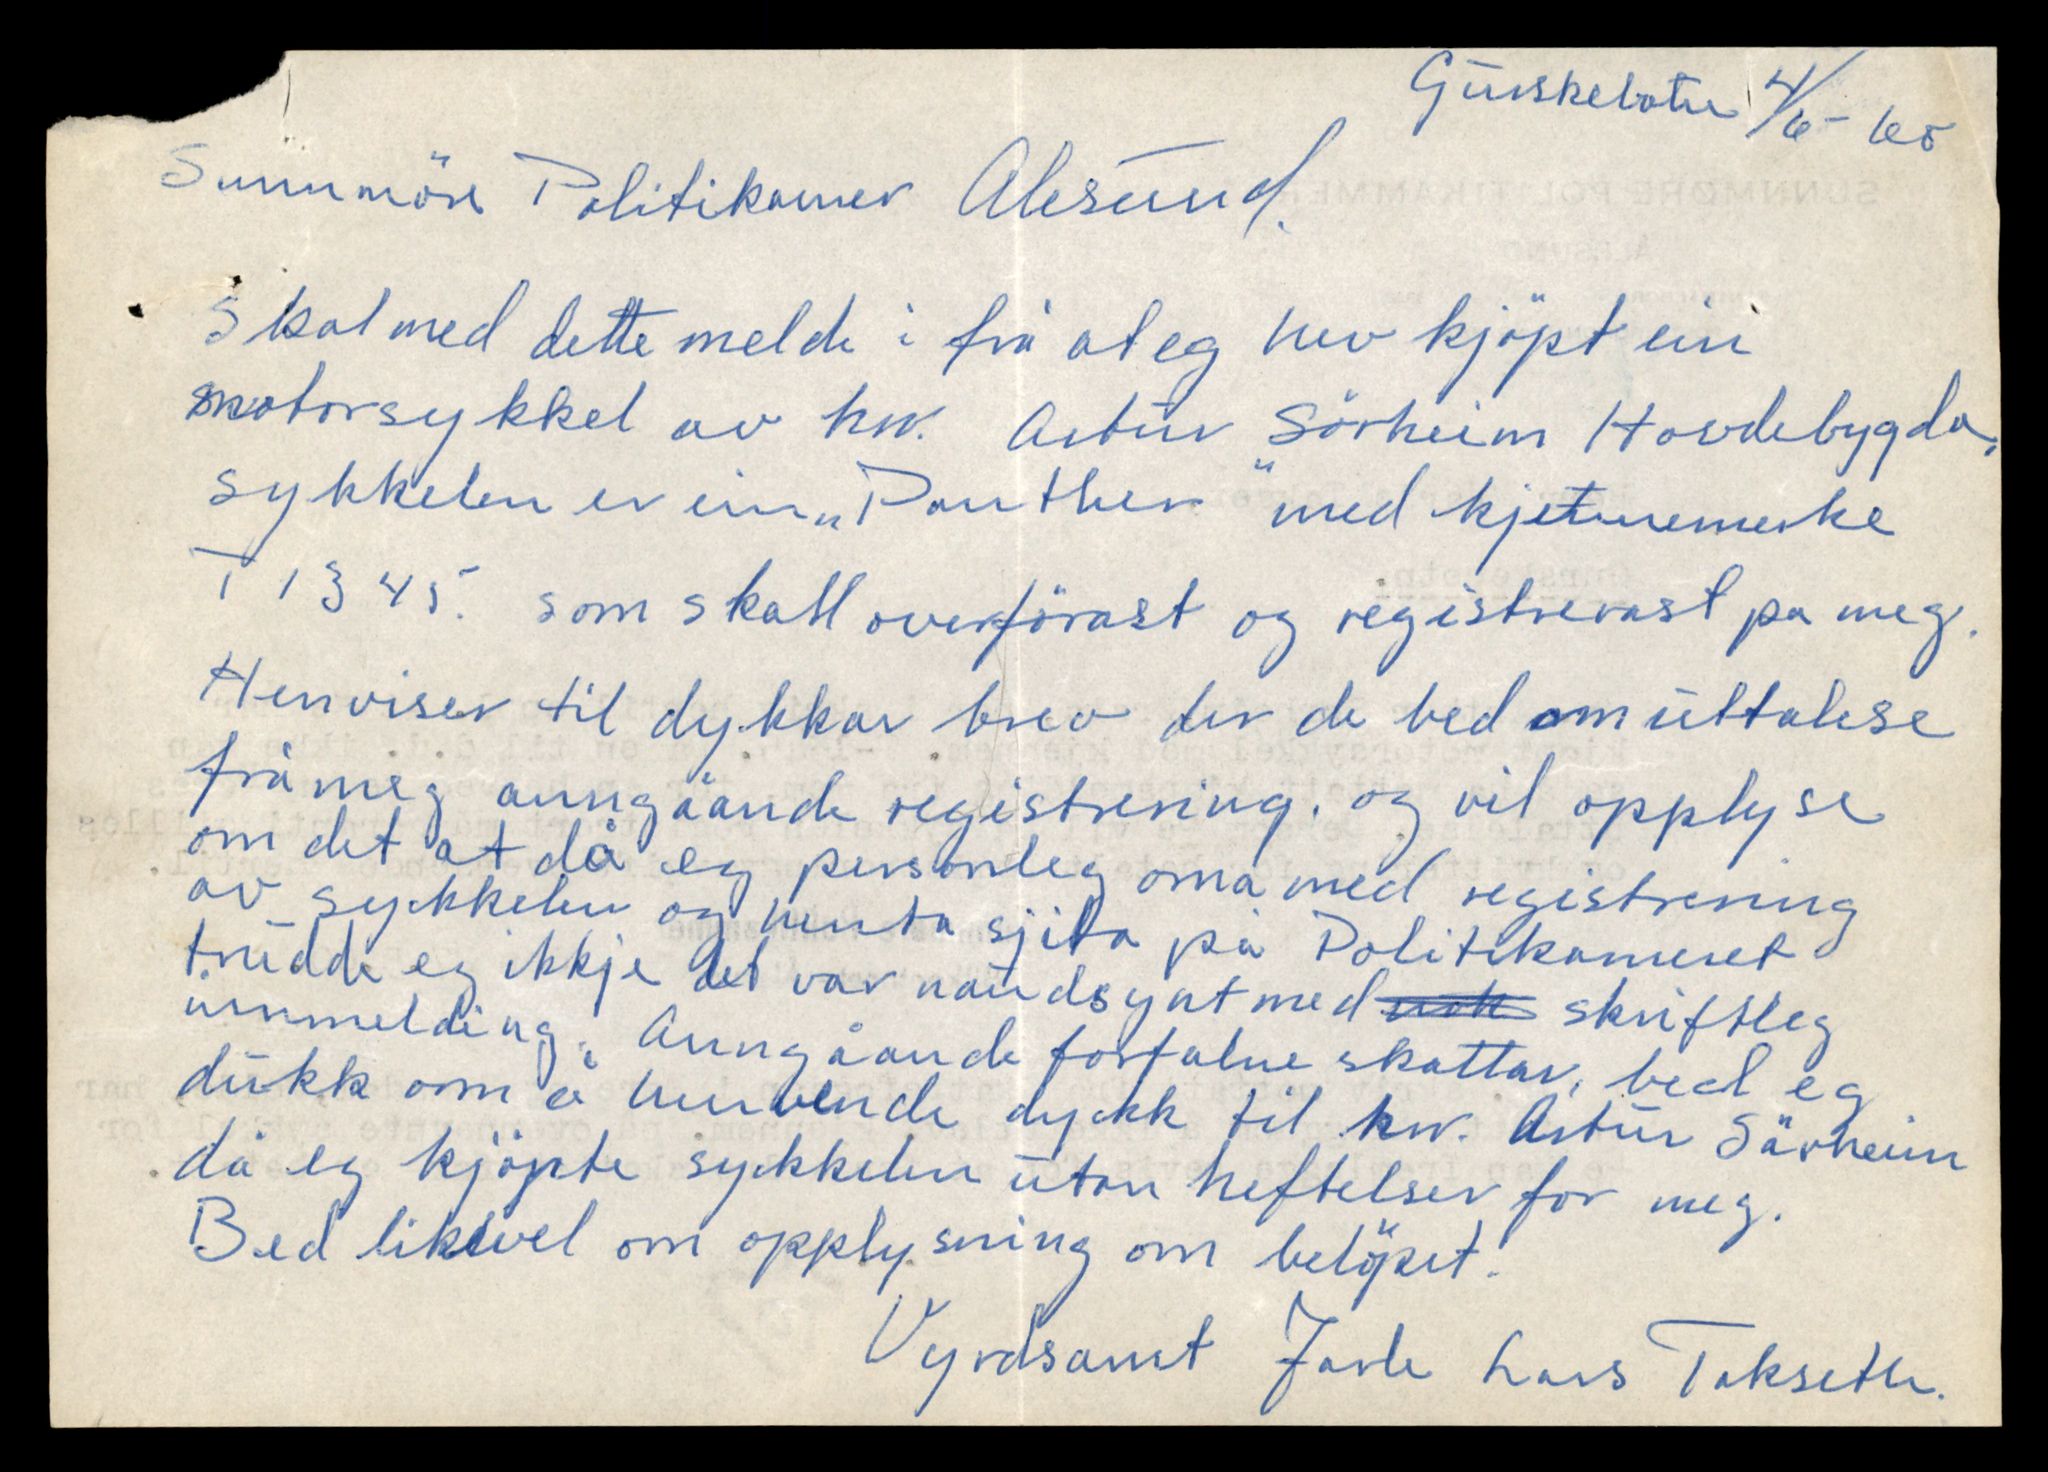 Gurskebotn 4/6-60
Sunnmöre Politikamer Alesund.
Skal med dette melde i frå at eg hev kjöpt ein
motorsykkel av hr. Artur Sörheim Hovdebygda,
sykkelen er ein „Panther" med kjennemerke
T 1345. som skall overförast og registrerast pa meg.
Henviser til dykkar brev der de bed om uttalese
frå meg anngåande registrering. og vil opplyse
om det at då eg personleg oma med registrering
av sykkelen og henta sjilta på Politikameret
trudde eg ikkje det var naudsynt med skriftleg
innmelding. Anngåande forfalne skattar, bed eg
dukk om å henvende dykk til hr. Artur Sörheim
då eg kjöpte sykkelen utan heftelser for meg.
Bed likevel om opplysning om belöpet.
Vyrdsamt Jarle Lars Takseth.